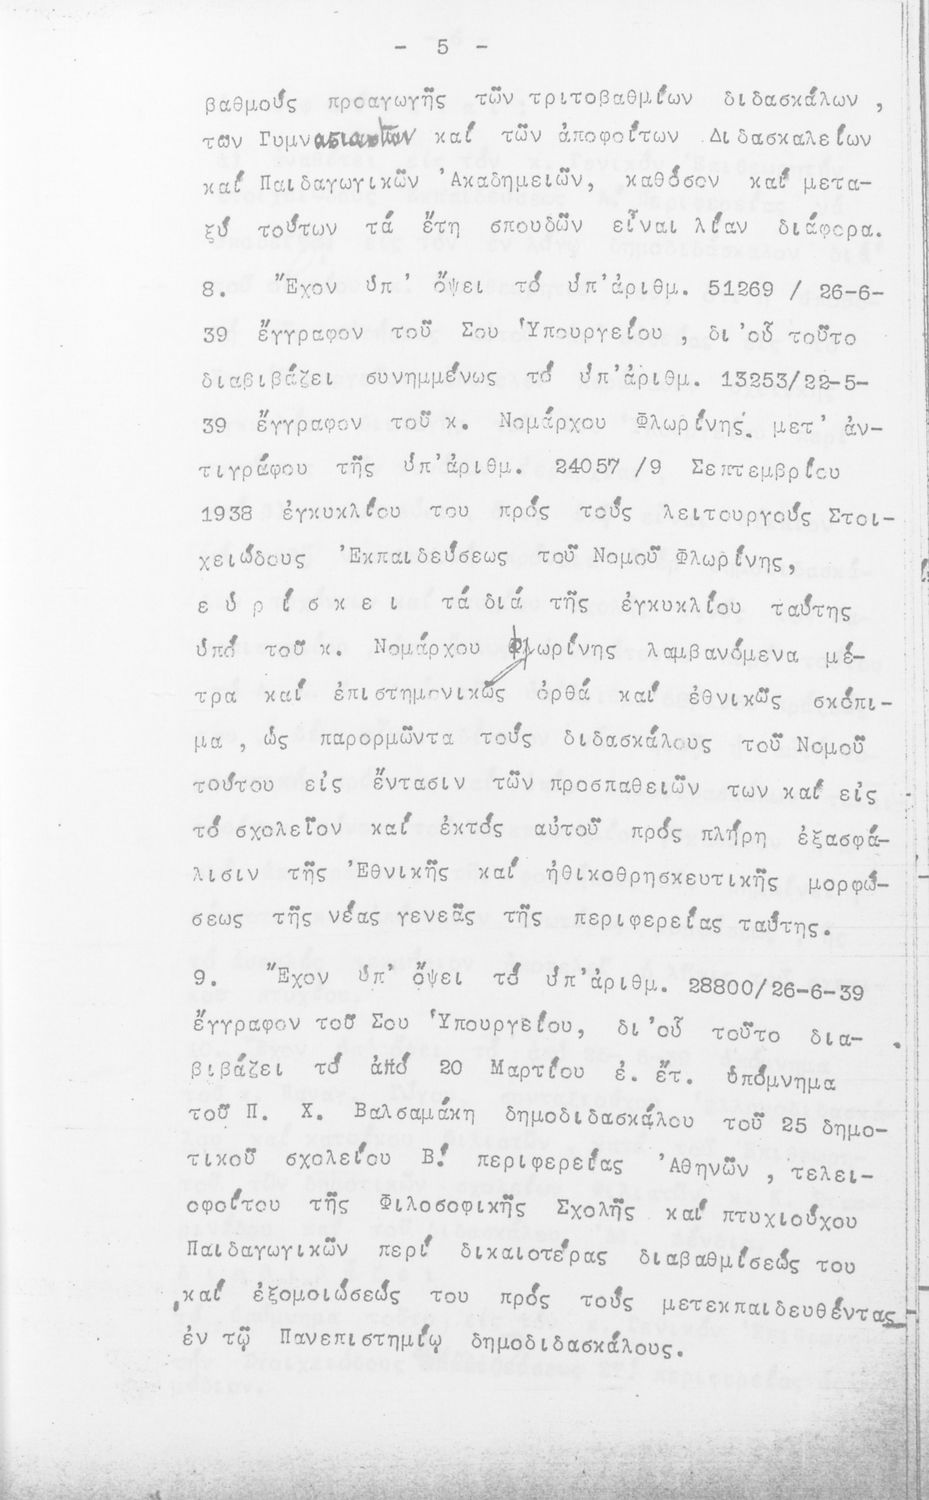 - 5 -
βαθμούς προαγωγῆς τῶν τριτοβαθμίων διδασκάλων ,
τῶν Γυμνασιακῶν καί τῶν ἀποφοίτων Διδασκαλείων
καί Παιδαγωγικῶν Ἀκαδημειῶν, καθόσον καί μετα-
ξύ τούτων τά ἔτη σπουδῶν εἶναι λίαν διάφορα.
8. Ἔχον ὑπ' ὄψει τό ὑπ'ἀριθμ. 51269 / 26-6-
39 ἔγγραφον τοῦ Σου Ὑπουργείου , δι'οὗ τοῦτο
διαβιβάζει συνημμένως τό ὑπ'ἀριθμ. 13253/22-5-
39 ἔγγραφον τοῦ κ. Νομάρχου Φλωρίνης. μετ' ἀν-
τιγράφου τῆς ὑπ'ἀριθμ. 24057 /9 Σεπτεμβρίου
1938 ἐγκυκλίου του πρός τούς λειτουργούς Στοι-
χειώδους Ἐκπαιδεύσεως τοῦ Νομοῦ Φλωρίνης,
ε ὑ ρ ί σ κ ε ι τά διά τῆς ἐγκυκλίου ταύτης
ὑπό τοῦ κ. Νομάρχου Φλωρίνης λαμβανόμενα μέ-
τρα καί ἐπιστημονικῶς ὀρθά καί ἐθνικῶς σκόπι-
μα , ὡς παρορμῶντα τούς διδασκάλους τοῦ Νομοῦ
τούτου είς ἔντασιν τῶν προσπαθειῶν των καί είς
τό σχολεῖον καί ἐκτός αὐτοῦ πρός πλήρη ἐξασφά-
λισιν τῆς Ἐθνικῆς καί ἠθικοθρησκευτικῆς μορφώ-
σεως τῆς νέας γενεᾶς τῆς περιφερείας ταύτης.
9. Ἔχον ὑπ' ὄψει τό ὑπ'ἀριθμ. 28800/26-6-39
ἔγγραφον τοῦ Σου Ὑπουργείου, δι'οὗ τοῦτο δια-
βιβάζει τό ἀπό 20 Μαρτίου ἐ. ἔτ. ὑπόμνημα
τοῦ Π. Χ. Βαλσαμάκη δημοδιδασκάλου τοῦ 25 δημο-
τικοῦ σχολείου Β! περιφερείας Ἀθηνῶν , τελει-
οφοίτου τῆς Φιλοσοφικῆς Σχολῆς καί πτυχιούχου
Παιδαγωγικῶν περί δικαιοτέρας διαβαθμίσεώς του
καί ἐξομοιώσεώς του πρός τούς μετεκπαιδευθέντας
ἐν τῷ Πανεπιστημίῳ δημοδιδασκάλους.